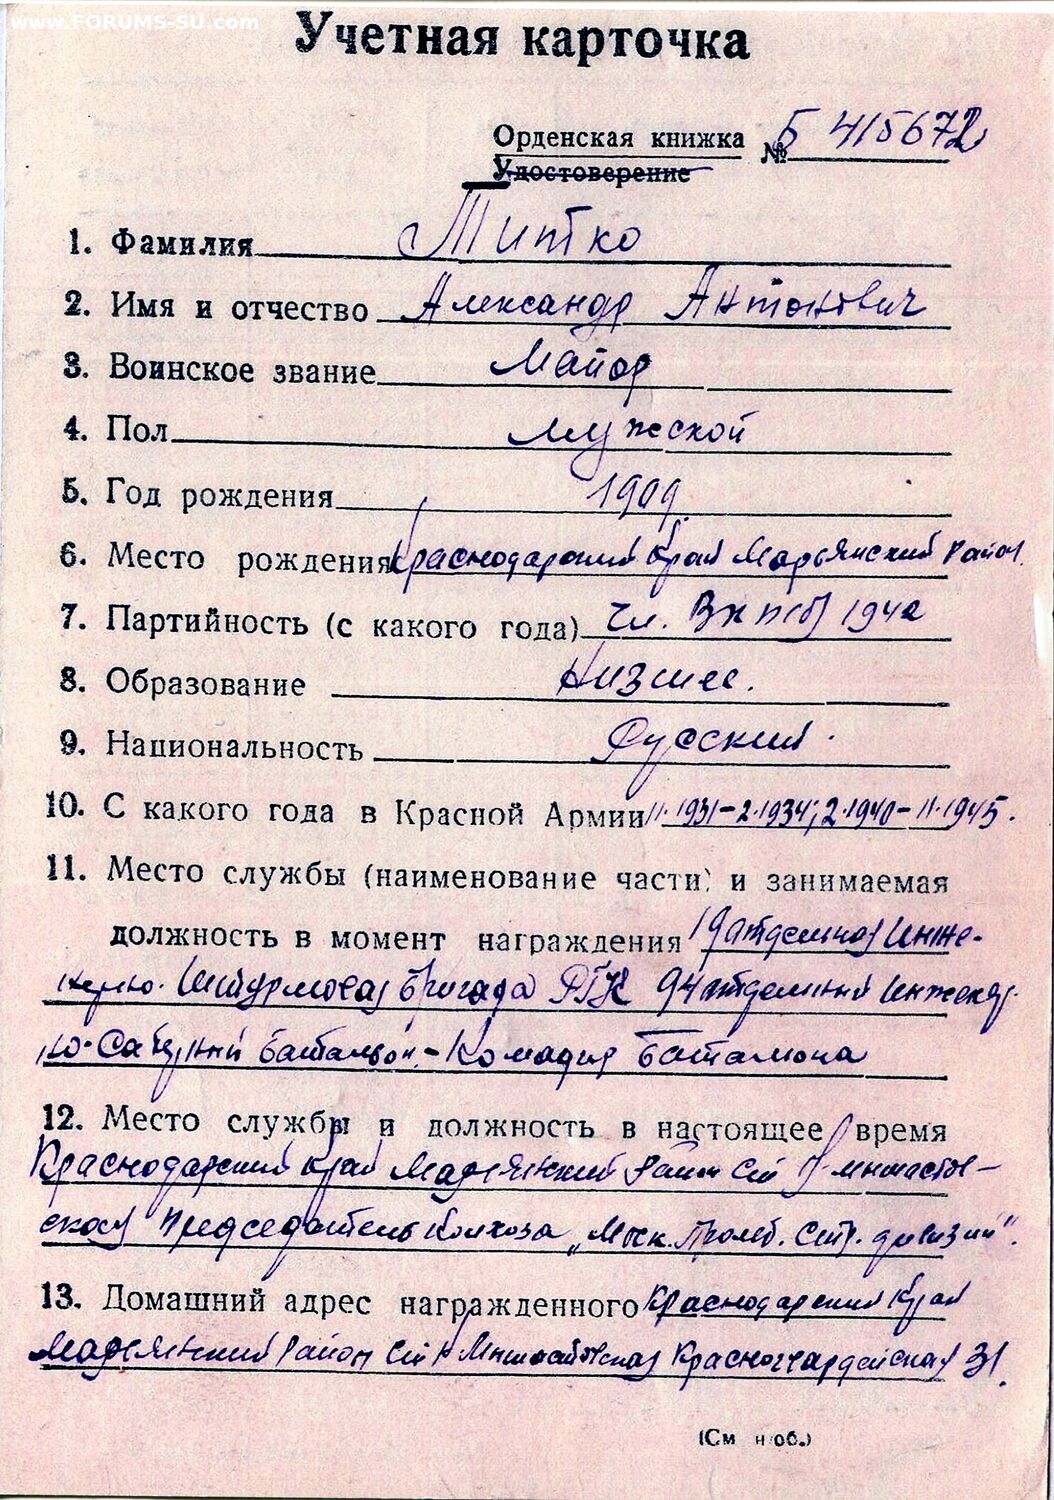 www.FORUMS-SU.com
Учетная карточка
Орденская книжка № Б 415672
Удостоверение
1. Фамилия Типко
2. Имя и отчество Александр Антонович
3. Воинское звание Майор
4. Пол мужской
5. Год рождения 1909
6. Место рождения Краснодарский Край Марьянский Район.
7. Партийность (с какого года) чл. ВКП(б) 1942
8. Образование Низшее.
9. Национальность Русский.
10. С какого года в Красной Армии 11.1931-2.1934; 2.1940-11.1945.
11. Место службы (наименование части) и занимаемая
должность в момент награждения 19 отдельная Инже-
нерно. Штурмовая бригада РГК 94 отдельный Инженер-
но-Саперный батальон - Командир Батальона
12. Место службы и должность в настоящее время
Краснодарский Край Марьянский Район Ст
ская Председатель Колхоза „Моск. Пролет. Стр. дивизии".
13. Домашний адрес награжденного Краснодарский Край
Марьянский Район Ст Н Мышастовская Красногвардейская 31.
(См н/об.)